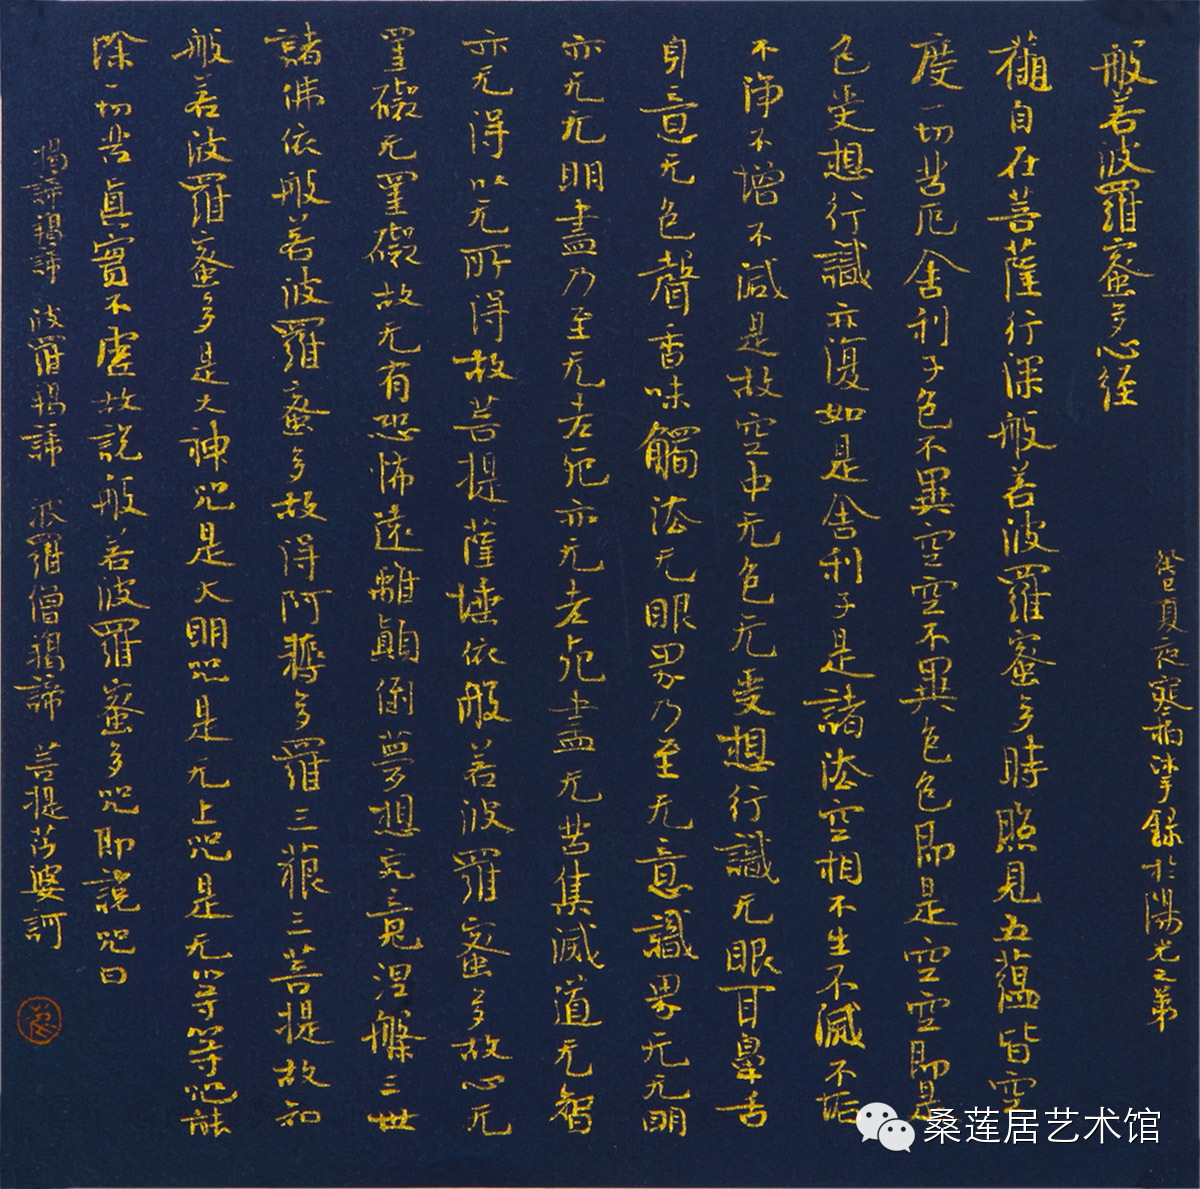 般若波羅蜜多心経
癸巳夏夜寒柏沙手録於陽光之第
觀自在菩薩行深般若波羅蜜多時照見五蘊皆空
度一切苦厄舍利子色不異空空不異色色即是空空即是
色受想行識亦復如是舍利子是諸法空相不生不滅不垢
不淨不增不減是故空中无色无受想行識无眼耳鼻舌
身意无色聲香味觸法无眼界乃至无意識界无无明
亦无无明盡乃至无老死亦无老死盡无苦集滅道无智
亦无得以无所得故菩提薩埵依般若波羅蜜多故心无
罣礙无罣礙故无有恐怖遠離顛倒夢想究竟涅槃三世
諸佛依般若波羅蜜多故得阿耨多羅三藐三菩提故知
般若波羅蜜多是大神咒是大明咒是无上咒是无等等咒能
除一切苦真實不虛故說般若波羅蜜多咒即說咒曰
揭諦揭諦 波羅揭諦 波羅僧揭諦 菩提莎婆訶
桑莲居艺术馆